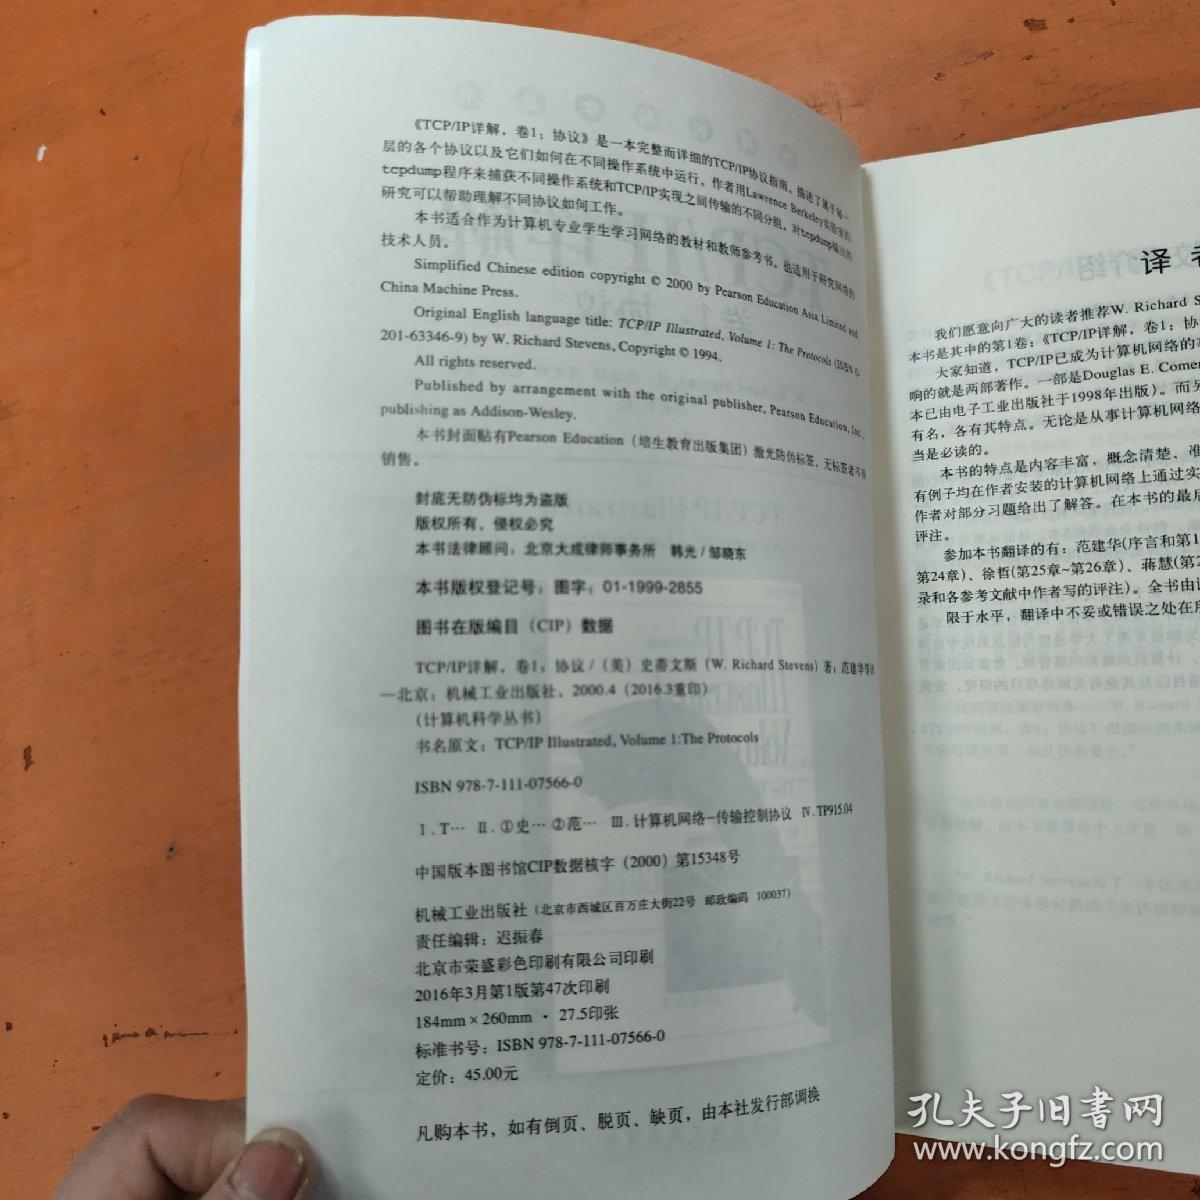 《TCP/IP详解，卷1：协议》是一本完整而详细的TCP/IP协议指南，描述了属于每一
层的各个协议以及它们如何在不同操作系统中运行。作者用Lawrence Berkeley实验室的
tcpdump程序来捕获不同操作系统和TCP/IP实现之间传输的不同分组。对tcpdump输出的
研究可以帮助理解不同协议如何工作。
本书适合作为计算机专业学生学习网络的教材和教师参考书。也适用于研究网络的
技术人员。
Simplified Chinese edition copyright © 2000 by Pearson Education Asia Limited and
China Machine Press.
Original English language title: TCP/IP Illustrated, Volume 1: The Protocols (ISBN 0-
201-63346-9) by W. Richard Stevens, Copyright © 1994.
All rights reserved.
Published by arrangement with the original publisher, Pearson Education, Inc.,
publishing as Addison-Wesley.
本书封面贴有Pearson Education（培生教育出版集团）激光防伪标签，无标签者不得
销售。
封底无防伪标均为盗版
版权所有，侵权必究
本书法律顾问：北京大成律师事务所 韩光/邹晓东
本书版权登记号：图字：01-1999-2855
图书在版编目（CIP）数据
TCP/IP详解，卷1：协议/（美）史蒂文斯（W. Richard Stevens）著；范建华等译
—北京：机械工业出版社，2000.4（2016.3重印）
（计算机科学丛书）
书名原文：TCP/IP Illustrated, Volume 1:The Protocols
ISBN 978-7-111-07566-0
Ⅰ.T… Ⅱ.①史…②范… Ⅲ.计算机网络-传输控制协议 Ⅳ.TP915.04
中国版本图书馆CIP数据核字（2000）第15348号
机械工业出版社（北京市西城区百万庄大街22号 邮政编码 100037）
责任编辑：迟振春
北京市荣盛彩色印刷有限公司印刷
2016年3月第1版第47次印刷
184mm×260mm · 27.5印张
标准书号：ISBN 978-7-111-07566-0
定价：45.00元
凡购本书，如有倒页、脱页、缺页，由本社发行部调换
译
我们愿意向广大的读者推荐W. Richard S
本书是其中的第1卷：《TCP/IP详解，卷1：协
大家知道，TCP/IP已成为计算机网络的
响的就是两部著作。一部是Douglas E. Comer
本已由电子工业出版社于1998年出版）。而另
有名，各有其特点。无论是从事计算机网络
当是必读的。
本书的特点是内容丰富，概念清楚、准
有例子均在作者安装的计算机网络上通过实
作者对部分习题给出了解答。在本书的最后
评注。
参加本书翻译的有：范建华(序言和第1
第24章)、徐哲(第25章~第26章)、蒋慧(第2
录和各参考文献中作者写的评注)。全书由
限于水平，翻译中不妥或错误之处在所
孔夫子旧书网
www.kongfz.com